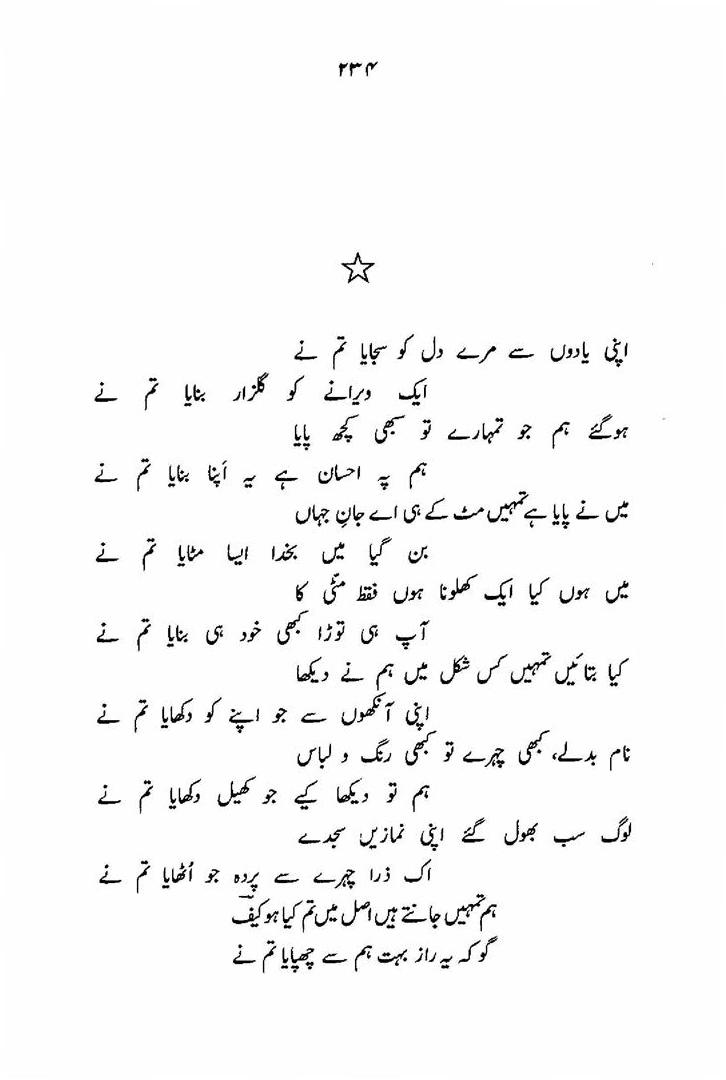 ۲۳۴
اپنی یادوں سے مرے دل کو سجایا تم نے
ایک ویرانے کو گلزار بنایا تم نے
ہوگئے ہم جو تمہارے تو سبھی کچھ پایا
ہم پہ احسان ہے یہ اَپنا بنایا تم نے
میں نے پایا ہے تمہیں مٹ کے ہی اے جانِ جہاں
بن گیا میں بخدا ایسا مٹایا تم نے
میں ہوں کیا ایک کھلونا ہوں فقط مٹّی کا
آپ ہی توڑا کبھی خود ہی بنایا تم نے
کیا بتائیں تمہیں کس شکل میں ہم نے دیکھا
اپنی آنکھوں سے جو اپنے کو دکھایا تم نے
نام بدلے، کبھی چہرے تو کبھی رنگ و لباس
ہم تو دیکھا کیے جو کھیل دکھایا تم نے
لوگ سب بھول گئے اپنی نمازیں سجدے
اک ذرا چہرے سے پردہ جو اُٹھایا تم نے
ہم تمہیں جانتے ہیں اصل میں تم کیا ہو کیفؔ
گو کہ یہ راز بہت ہم سے چھپایا تم نے